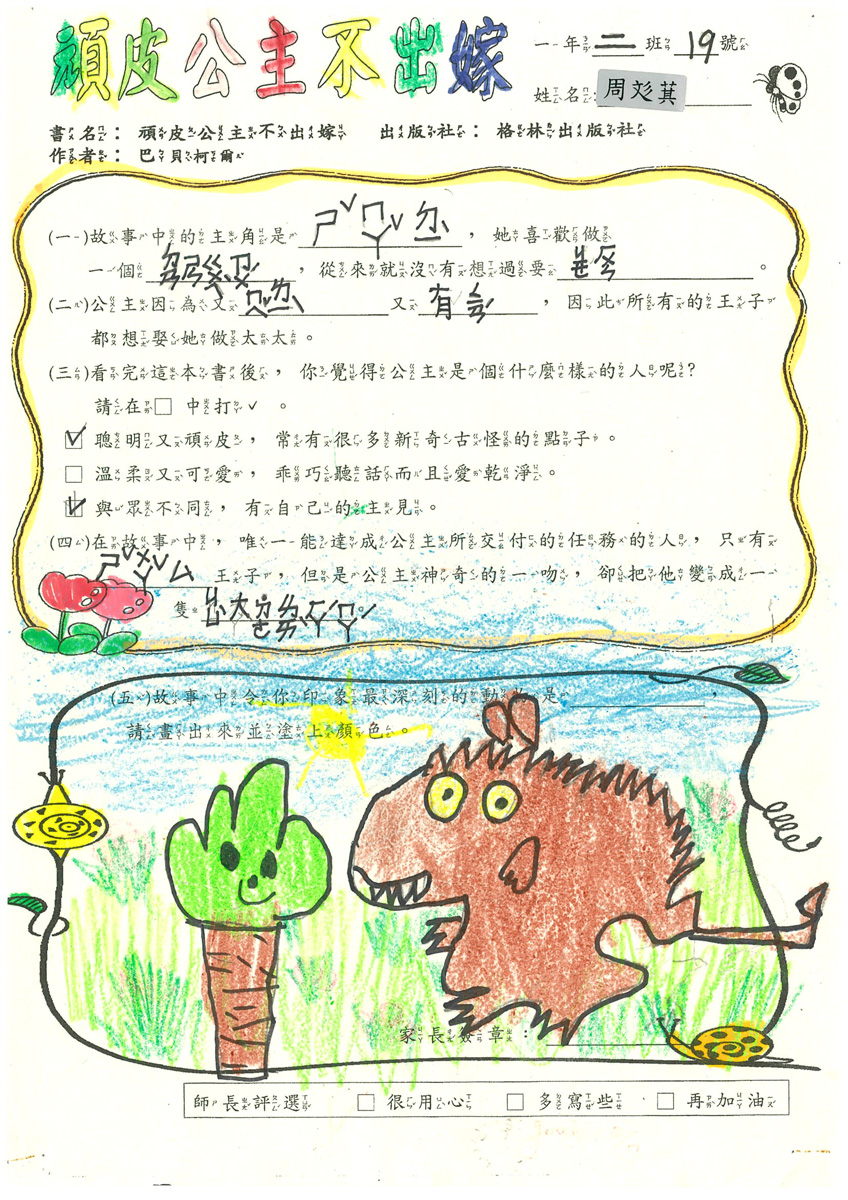 頑皮公主不出嫁
一年二班19號
姓名:周彣萁
書名：頑皮公主不出嫁 出版社：格林出版社
作者：巴貝柯爾
(一)故事中的主角是ㄕˇㄇㄚˇㄉㄢˋ，她喜歡做
一個，從來就沒有想過要。
(二)公主因為又又有，因此所有的王子
都想娶她做太太。
(三)看完這本書後，你覺得公主是個什麼樣的人呢?
請在□中打ˇ。
☑聰明又頑皮，常有很多新奇古怪的點子。
□溫柔又可愛，乖巧聽話而且愛乾淨。
☑與眾不同，有自己的主見。
(四)在故事中，唯一能達成公主所交付的任務的人，只有
王子，但是公主神奇的一吻，卻把他變成一
隻
(五)故事中令你印象最深刻的動物是，
請畫出來並塗上顏色。
家長簽章：
師長評選 □很用心 □多寫些 □再加油